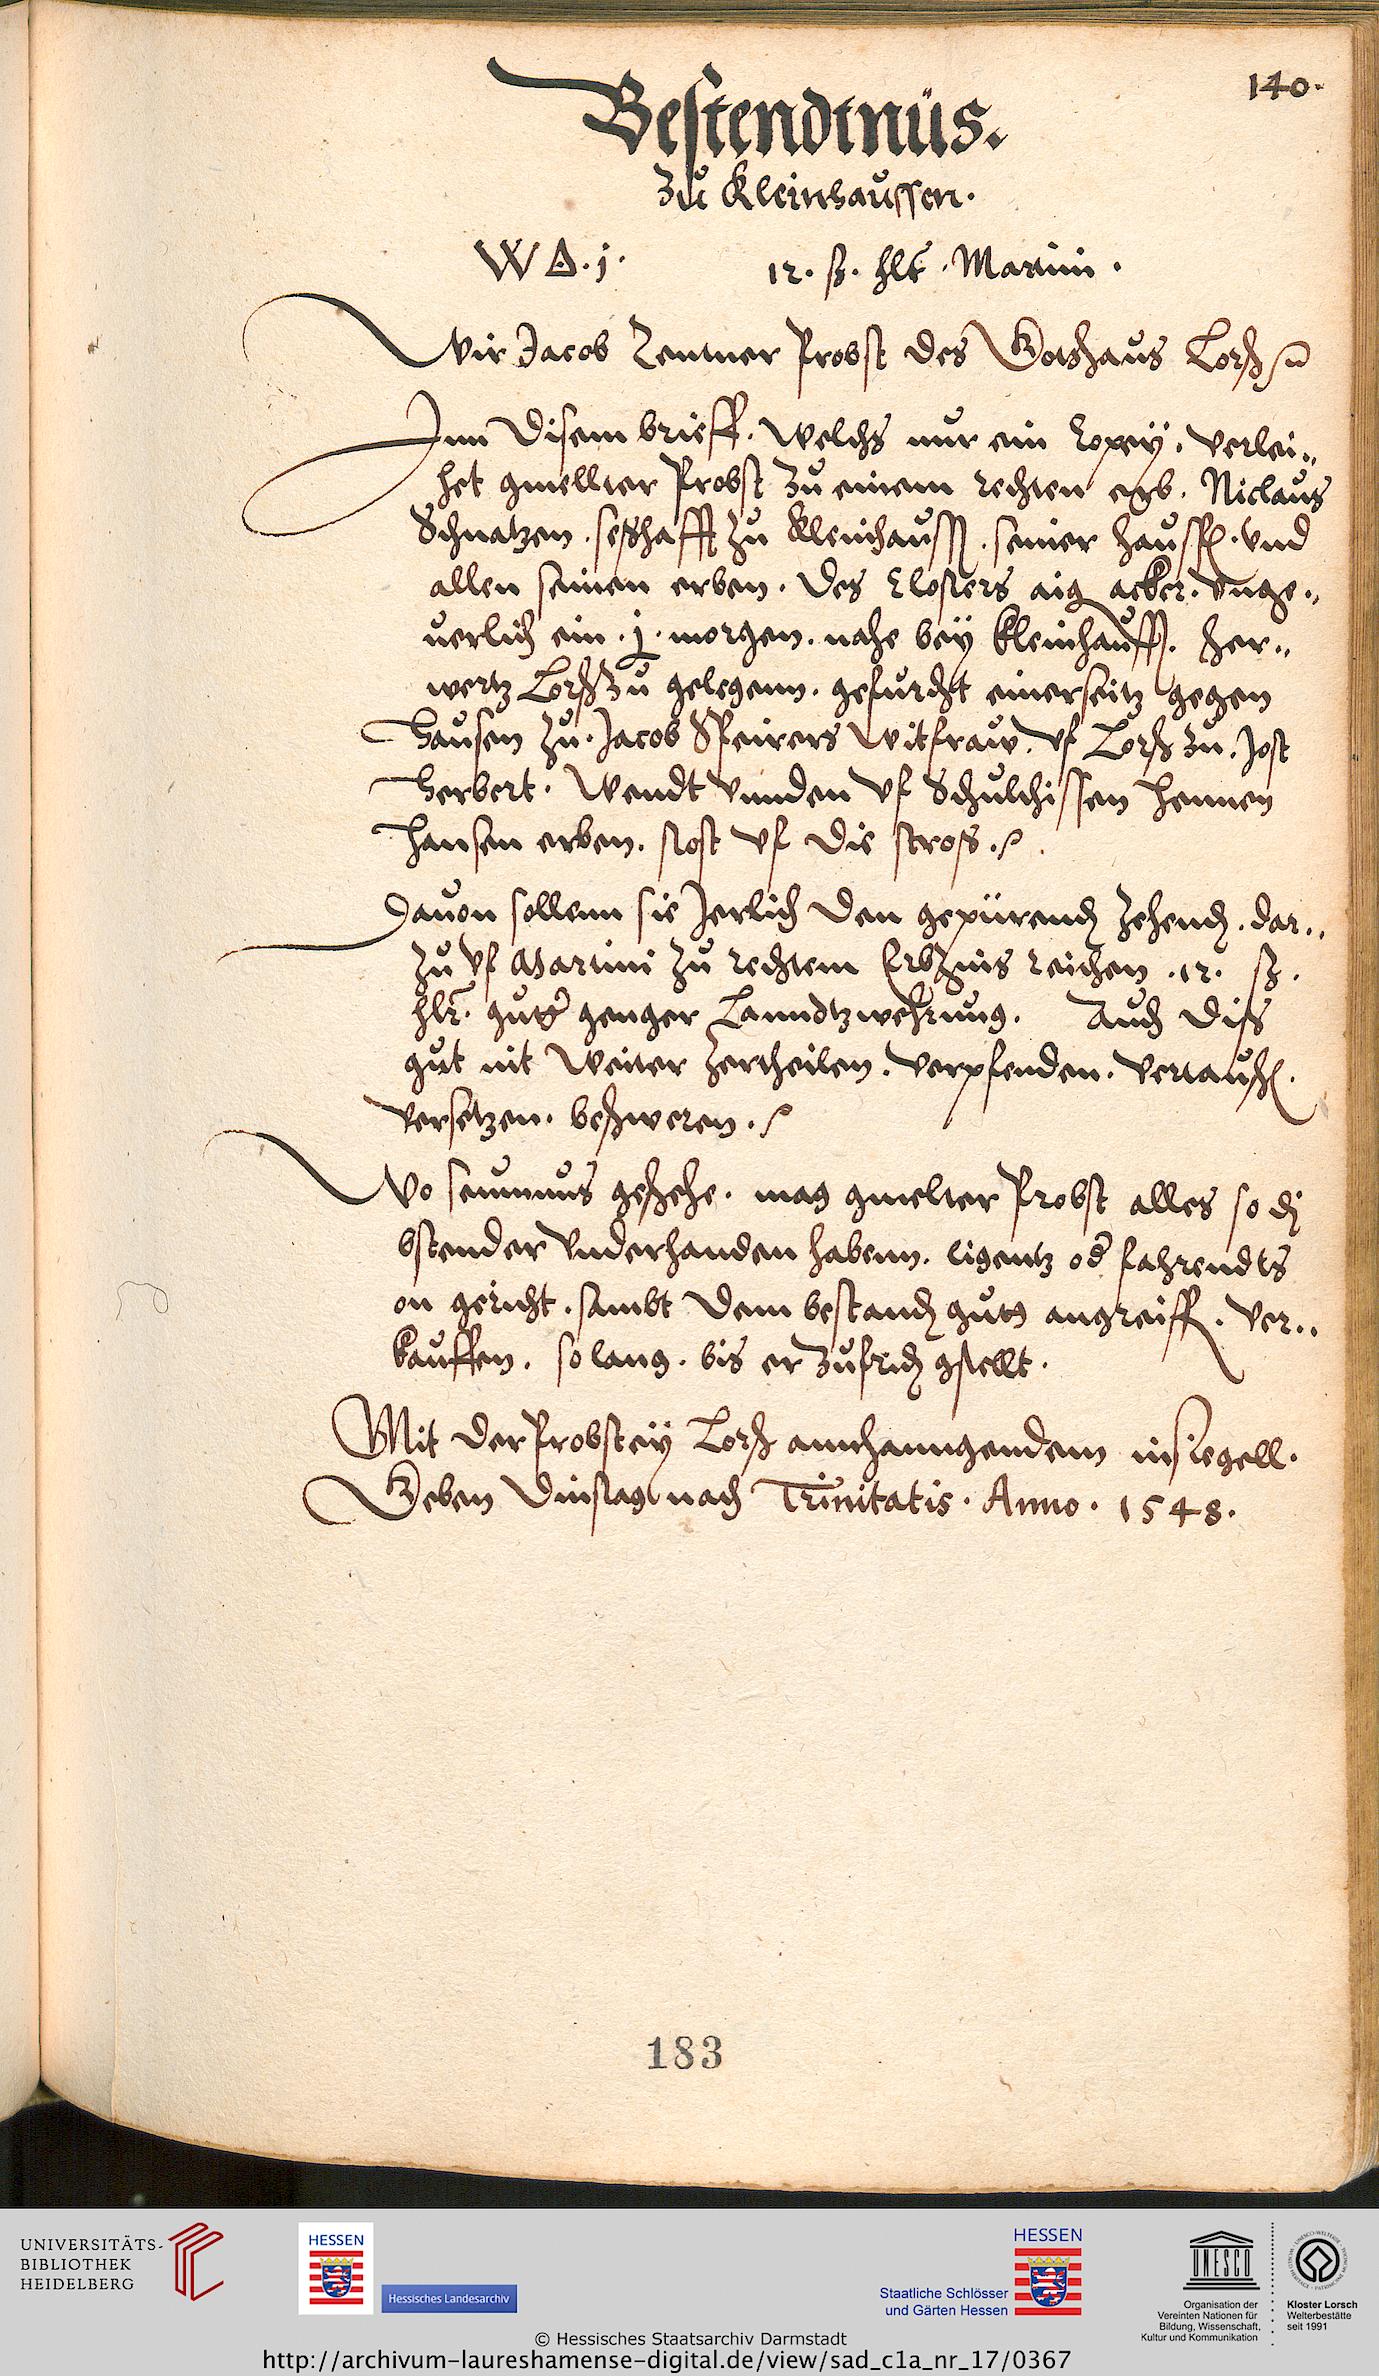 140.
Bestendtnüs.
Zu Kleinhaussen.
W Δ. j. 12. ß. hlr. Martini.
Wir Jacob Zentner Probst des Gotshaus Lorß
Inn disem brieff. Welchs nur ein Copey. verlei„
het gmellter Probst zu einem rechten erb. Niclaus
Schnatzen. seßhafft zu Kleinhauss. seiner haussf. vnd
allen seinen erben. des Closters aig acker. vnge„
uerlich ein. j. morgen. nahe bey Kleinhauss. her„
wertz Lorß zu gelegenn. gefurcht einerseitz gegen
Hausen zu. Jacob Speirers Witfraw. vf Lorß zu. Jost
Herbert. Wendt vnnden vf Schulthissen Hennen
Hansen erben. stost vf die stross.
Dauon sollenn sie Jerlich den gepürend zehend. dar„
zu vf Martini zu rechtem Erbzins reichen. 12. ß.
hlr. gutter genger Lanndtzwehrung. Auch diss
gut nit weiter zertheilen. verpfenden. vertauß.
versetzen. beßweren.
Wo seumnus geßehe. mag gmelter Probst alles so di
bstender vnderhanden habenn. ligentz od fahrendts
on gericht. sambt dem bestand guts angreiff. ver„
kauffen. so lang. bis er zufrid gstellt.
Mit der Probstey Lorß annhanngendem insiegell.
Geben Dinstag nach Trinitatis. Anno. 1548.
183
UNIVERSITÄTS-
BIBLIOTHEK
HEIDELBERG
HESSEN
Hessisches Landesarchiv
HESSEN
Staatliche Schlösser
und Gärten Hessen
UNESCO
Organisation der
Vereinten Nationen für
Bildung, Wissenschaft,
Kultur und Kommunikation
Kloster Lorsch
Welterbestätte
seit 1991
© Hessisches Staatsarchiv Darmstadt
http://archivum-laureshamense-digital.de/view/sad_c1a_nr_17/0367